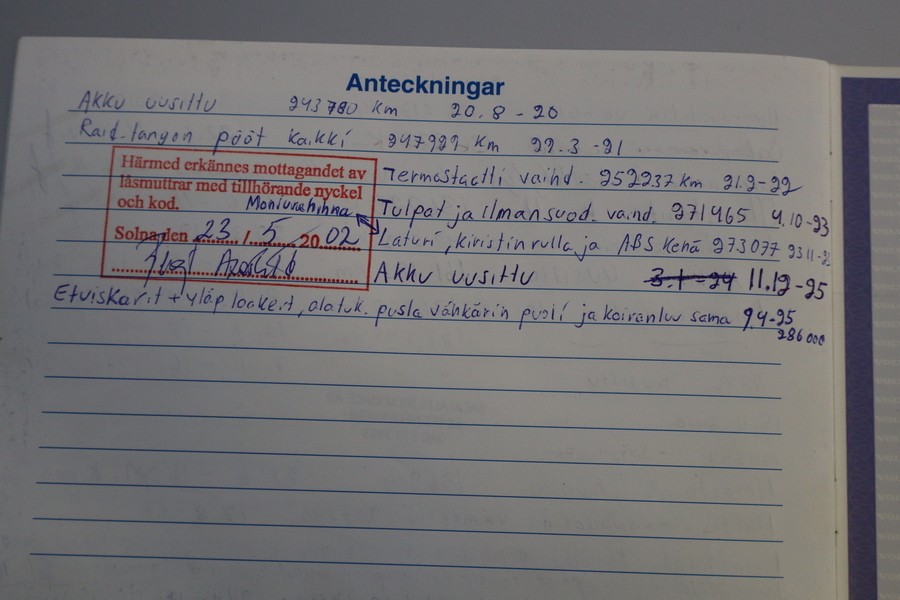 Anteckningar
Akku uusittu 243780 km 20.8-20
Raid.tangon päät kaikki 247922 km 22.3-21
Härmed erkännes mottagandet av
låsmuttrar med tillhörande nyckel
och kod.
Moniurahihna
Solna den 23 / 5 2002
Termostaatti vaihd. 252237 km 21.2-22
Tulpat ja ilmansuod. vaihd. 271465 4.10-23
Laturi, kiristinrulla ja ABS kehä 273077 23 11-2
Akku uusittu 3.1-24 11.12-25
Etuiskarit + yläp laakerit, alatuk. pusla vähkärin puoli ja koiranluu sama 9.4-25
286000